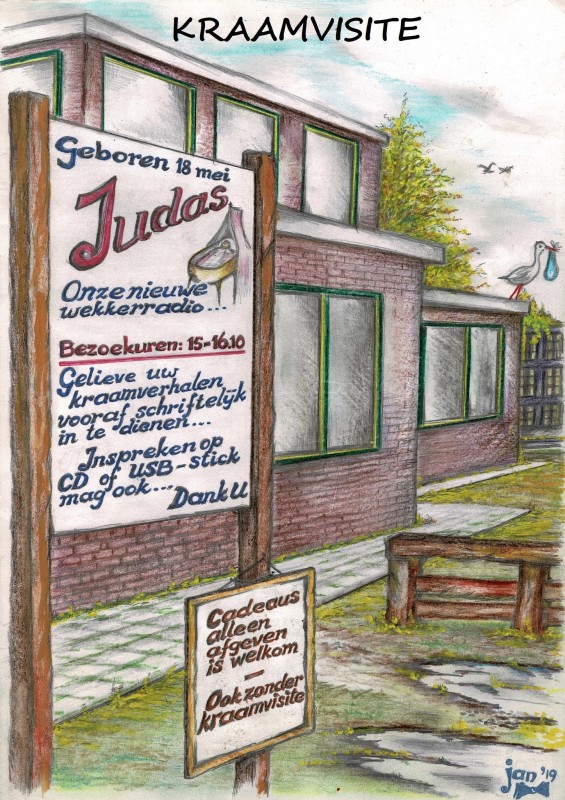 KRAAMVISITE
Geboren 18 mei
Judas
Onze nieuwe
wekkerradio...
Bezoekuren: 15-16.10
Gelieve uw
kraamverhalen
vooraf schriftelijk
in te dienen...
Inspreken op
CD of USB-stick
mag ook...
Dank U
Cadeaus
alleen
afgeven
is welkom
-
Ook zonder
kraamvisite
jan '19